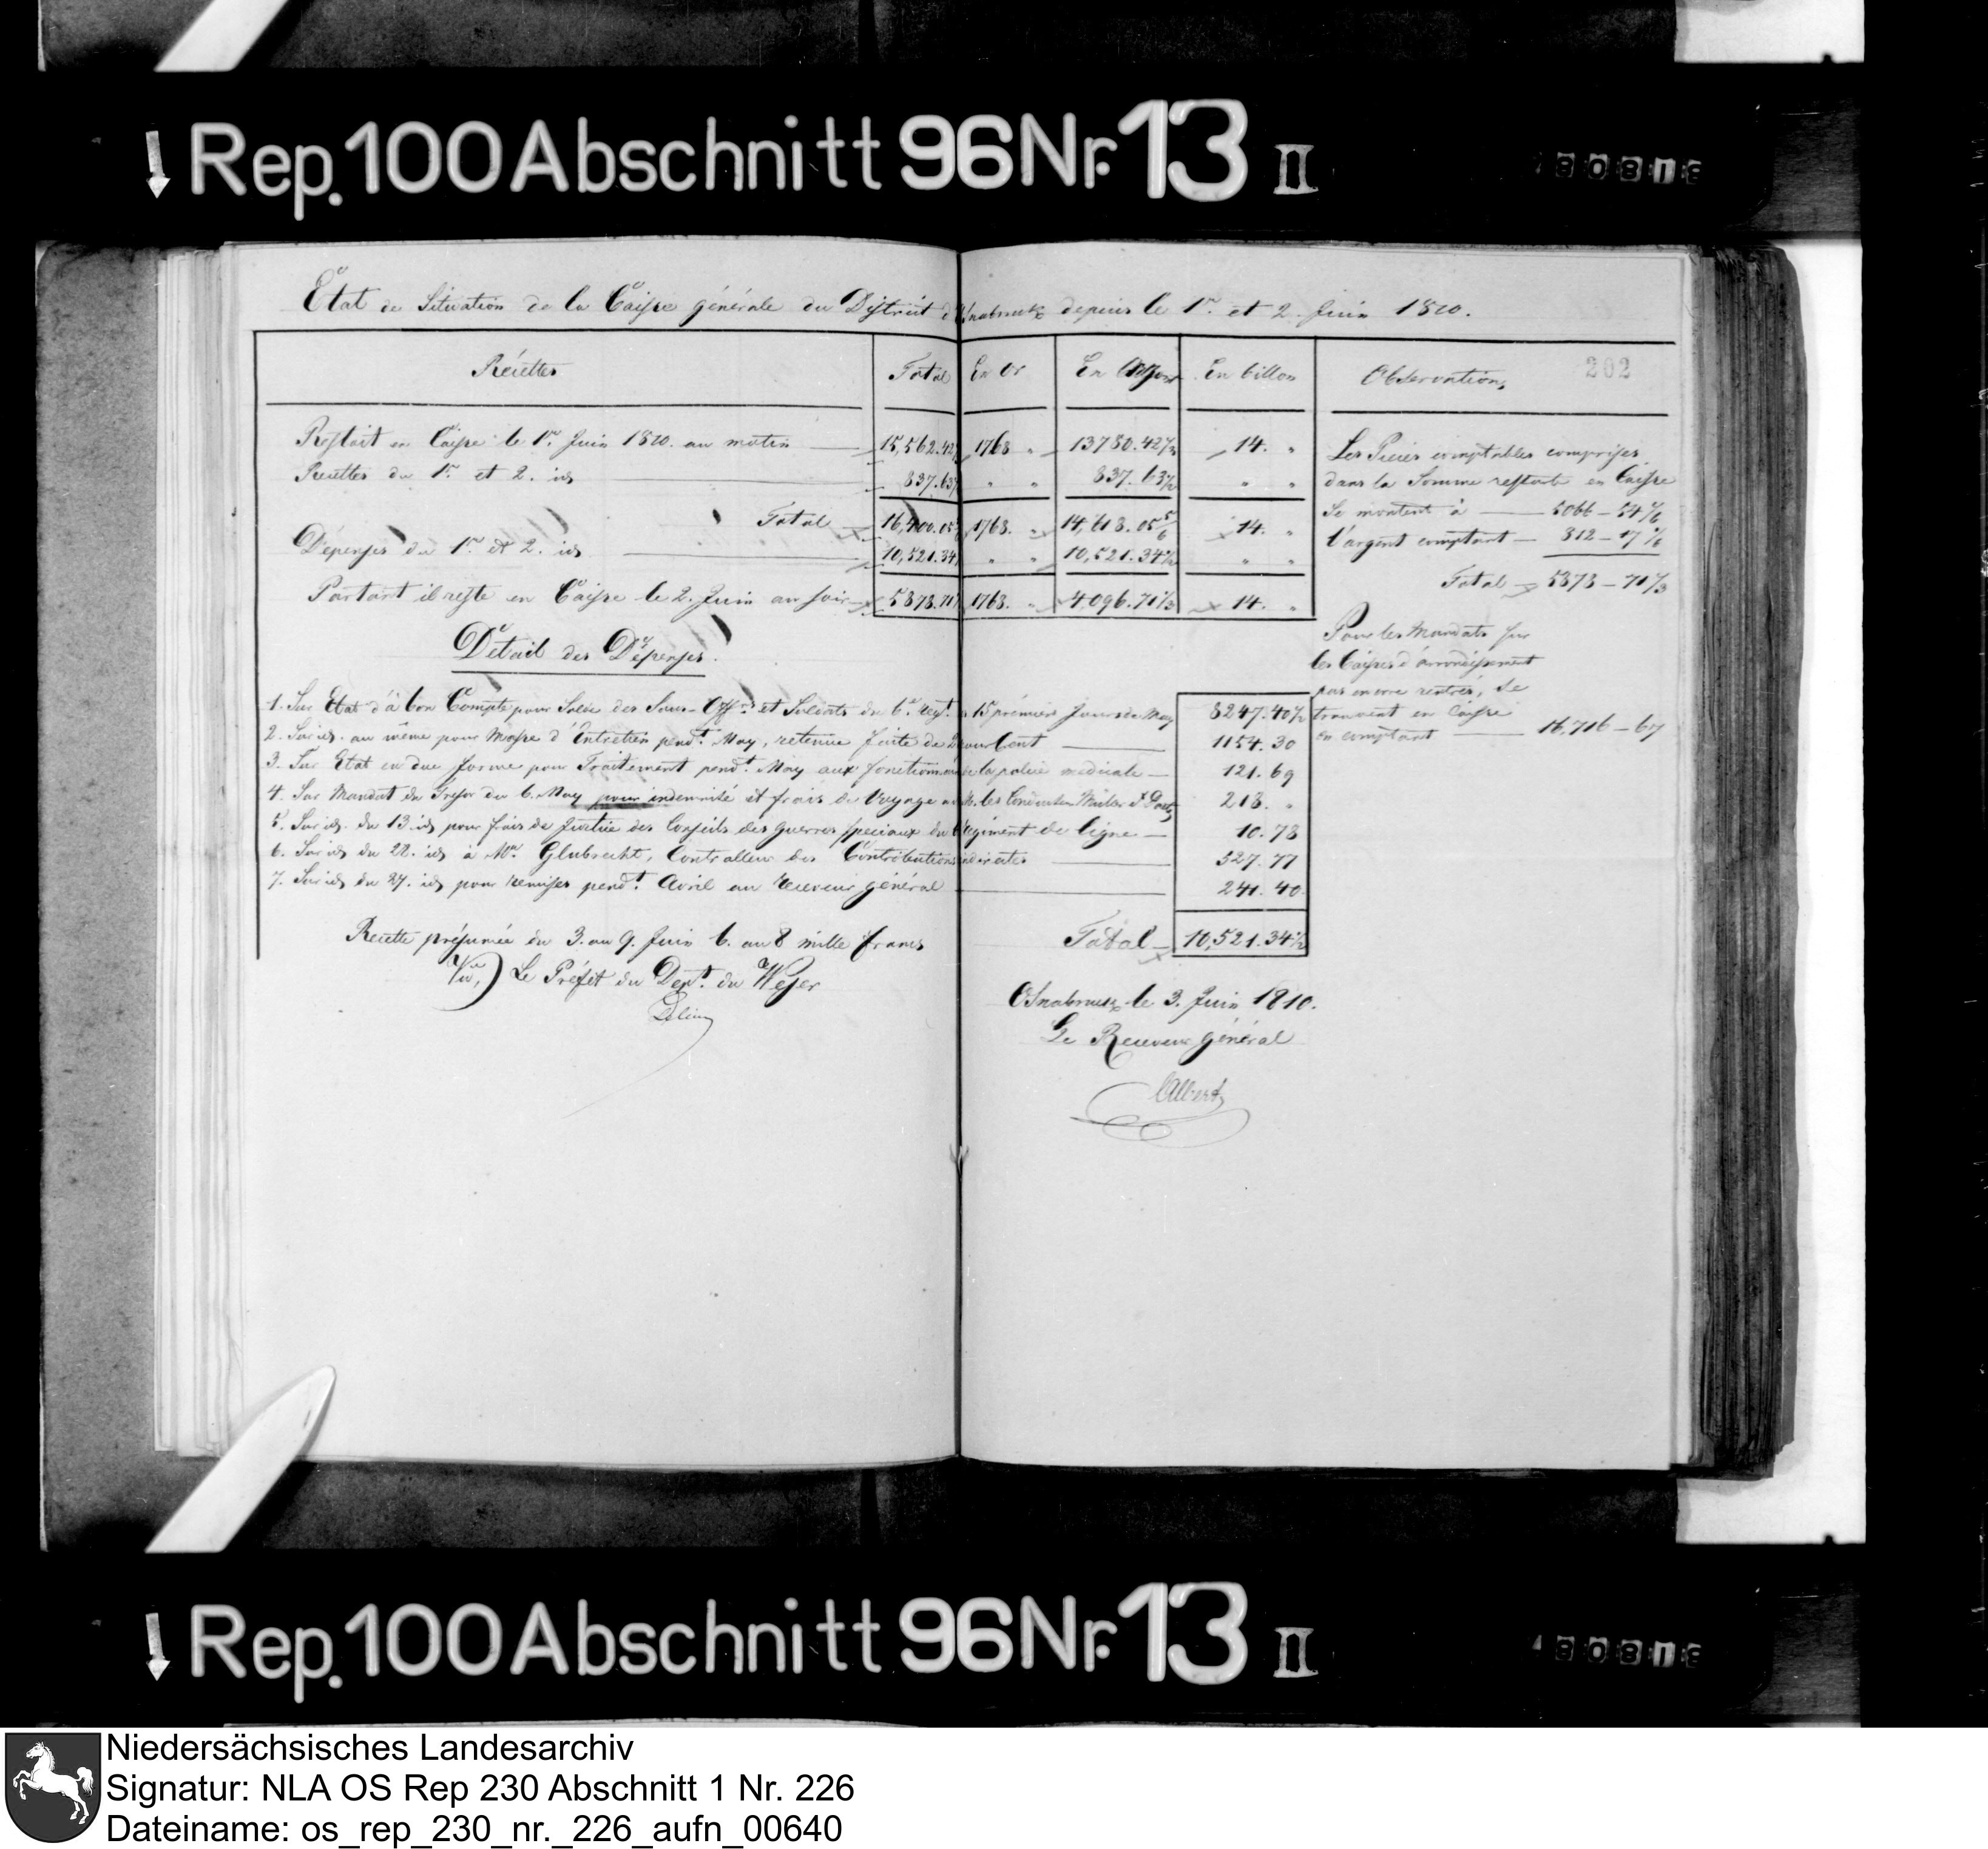 Rep. 100 Abschnitt 96 Nr. 13 II
Etat de Situation de la Caisse générale du District d'Osnabruck depuis le 1r. et 2. Juin 1810.
Récettes Total En Or En Argent En billon Observations 202
Restait en Caisse le 1r. Juin 1810. au matin 15,562.42 1768 " 13780.42 14. "
Recettes du 1r. et 2. id 837.63 " " 837.63 " "
Total 16,400.05 1768. " 14,618.05 5/6 14. "
Dépenses du 1r. et 2. id 10,521.34 " " 10,521.34 1/2 " "
Partant il reste en Caisse le 2. Juin au soir 5878.71 1768. " 4,096.71 1/3 14. "
Les Pièces comptables comprises
dans la Somme restante en Caisse
se montent à 5066-54
l'argent comptant 812-17
Total 5878-71 1/3
Pour les Mandats sur
les Caisses d'arrondissement
pas encore rentrés, se
trouvent en Caisse
en comptant 16,716-67
Détail des Dépenses.
1. Sur Etat d'à bon Compte pour Solde des Sous-Offrs et Soldats du 6e Regt. 15 prémiers Jours de May 8247.40 1/2
2. Sur id. au même pour Masse d'Entretien pendt. May, retenue faite de 2 pour Cent 1154.30
3. Sur Etat en due forme pour Traitement pendt. May aux fonctionnaires de la police médicale 121.69
4. Sur Mandat du Tresor du 6. May pour indemnité et frais de Voyage à M. les Conducteurs 218. "
5. Sur id. du 13. id pour frais de Justice des Conseils des Guerres speciaux du 6 Regiment de ligne 10.78
6. Sur id du 22. id à Mr. Glubrecht, Controlleur des Contributions indirectes 527.77
7. Sur id du 27. id pour remises pendt. Avril au Receveur général 241.40
Total 10,521.34 1/2
Recette présumée du 3. au 9. Juin 6. au 8 mille francs
Vu, Le Préfet du Dept. du Weser
Osnabruck le 3. Juin 1810.
Le Receveur général
Rep. 100 Abschnitt 96 Nr. 13 II
Niedersächsisches Landesarchiv
Signatur: NLA OS Rep 230 Abschnitt 1 Nr. 226
Dateiname: os_rep_230_nr._226_aufn_00640